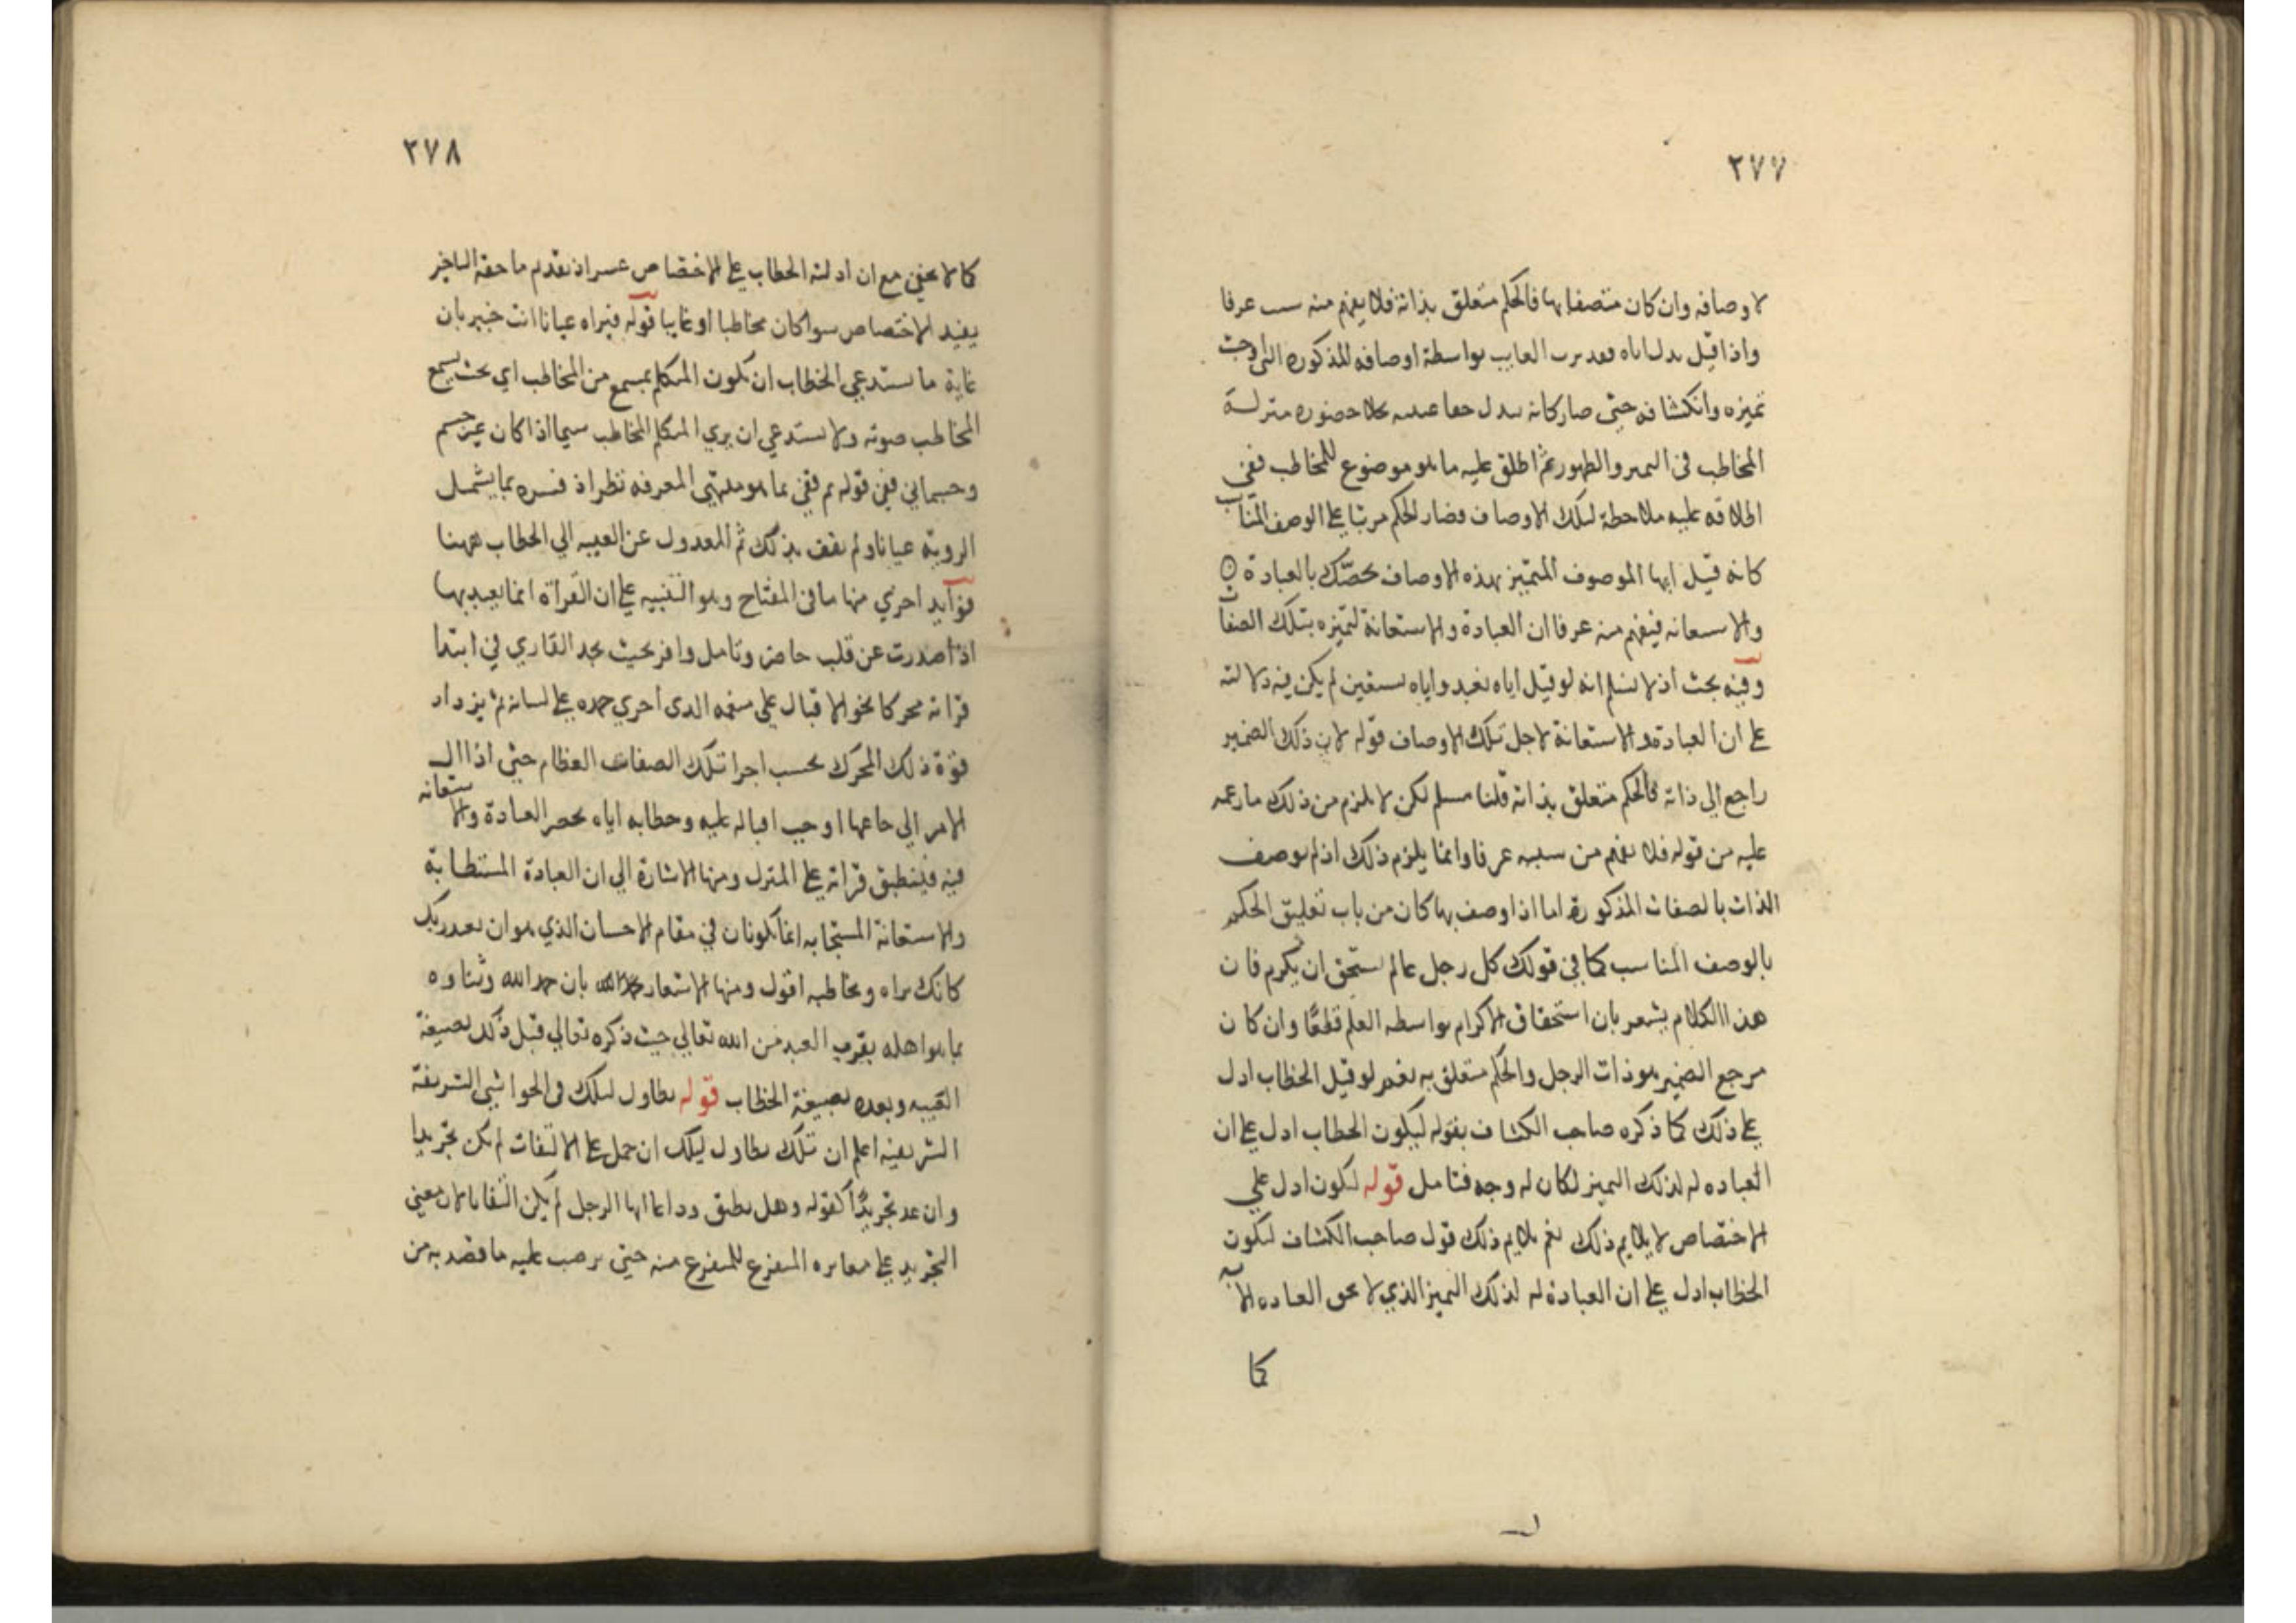 ٢٧٧
لاوصافه وان كان متصفا بها فالحكم متعلق بذاته فلا يفهم منه سبب عرفا
واذا قيل بدل اياه فقد نزل الغايب بواسطة اوصافه المذكوره التي اوجبت
تميزه وانكشافه حتى صار كانه تبدل خفا غيبته بجلا حضوره منزلة
المخاطب في التميز والظهور ثم اطلق عليه ما هو موضوع للمخاطب ففي
اطلاقه عليه ملاحظة لتلك الاوصاف فصار الحكم مرتبا على الوصف المناسب
كانه قيل ايها الموصوف المتميز بهذه الاوصاف نخصّك بالعبادة
والاستعانه فيفهم منه عرفا ان العبادة والاستعانة لتميزه بتلك الصفات
وفيه بحث اذ لا نسلم انه لو قيل اياه نعبد واياه نستعين لم يكن فيه دلالته
على ان العبادة والاستعانة لاجل تلك الاوصاف قوله لان ذلك الضمير
راجع الي ذاته فالحكم متعلق بذاته قلنا مسلم لكن لا يلزم من ذلك ما زعمه
عليه من قوله فلا يفهم من سببه عرفا وانما يلزم ذلك اذ لم يوصف
الذات بالصفات المذكورة اما اذا وصف بها كان من باب تعليق الحكم
بالوصف المناسب كما في قولك كل رجل عالم يستحق ان يكرم فان
هذا الكلام يشعر بان استحقاق الاكرام بواسطه العلم قطعًا وان كان
مرجع الضمير هو ذات الرجل والحكم متعلق به نعم لو قيل الخطاب ادل
على ذلك كما ذكره صاحب الكشاف بقوله ليكون الخطاب ادل على ان
العباده له لذلك التميز لكان له وجه فتامل قوله ليكون ادل علي
الاختصاص لا يلايم ذلك نعم يلايم ذلك قول صاحب الكشاف ليكون
الخطاب ادل على ان العبادة له لذلك التميز الذي لا تحق العباده الا به
كما
٢٧٨
كما لا يخفي مع ان ادلته الخطاب على الاختصاص عسر اذ تقديم ما حقه التاخير
يفيد الاختصاص سوا كان مخاطبا او غايبا قوله فيراه عيانا انت خبير بان
غاية ما يستدعي الخطاب ان يكون المتكلم بمسمع من المخاطب اي بحث يسمع
المخاطب صوته ولا يستدعي ان يري المتكلم المخاطب سيما اذا كان غير جسم
وجسماني ففي قوله ثم قفي بما هو منتهي المعرفه نظر اذ فسره بما يشمل
الروية عيانا ولم يقف بذلك ثم للعدول عن الغيبه الي الخطاب ههنا
فوآيد اخري منها ما في المفتاح وهو التنبيه على ان القراة انما يعبد بها
اذا صدرت عن قلب حاضر وتامل وافر بحيث يجد القاري في ابتدا
قراته محركا نحو الاقبال علي منعمه الذي اجري حمده على لسانه ثم يزداد
قوة ذلك المحرك بحسب اجرا تلك الصفات العظام حتى اذا ال
الامر الي خاتمها اوجب اقباله عليه وخطابه اياه بحصر العبادة والاستعانه
فيه فينطبق قراته على المنزل ومنها الاشارة الي ان العبادة المستطابة
والاستعانة المستجابه انما يكونان في مقام الاحسان الذي هو ان تعبد ربك
كانك تراه وتخاطبه اقول ومنها الاشعار بان حمد الله وثناوه
بما هو اهله يقرب العبد من الله تعالي حيث ذكره تعالي قبل ذلك بصيغة
الغيبه وبعده بصيغة الخطاب قوله تطاول ليلك في الحواشي الشريفة
الشريفيه اعلم ان تلك تطاول ليلك ان حمل على الالتفات لم يكن تجريدا
وان عد تجريدًا كقوله وهل تطيق وداعا ايها الرجل لم يكن التفاتا لان معني
التجريد على مغايره المنتزع للمنتزع منه حتى يرتب عليه ما قصد به من